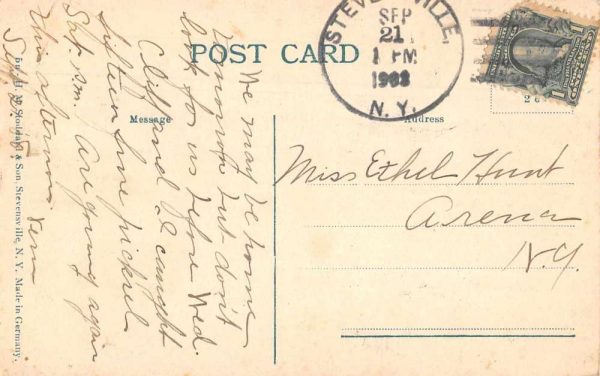 POST CARD
STEVENSVILLE,
SEP
21
1 PM
1908
N.Y.
Message
Address
We may be home
tomorrow but don't
look for us before Wed.
Cliff and I caught
fifteen fine pickerel
Sat. P.M. Are going again
this afternoon. Vern
Miss Ethel Hunt
Arena
N.Y.
Stoddard & Son, Stevensville, N. Y. Made in Germany.